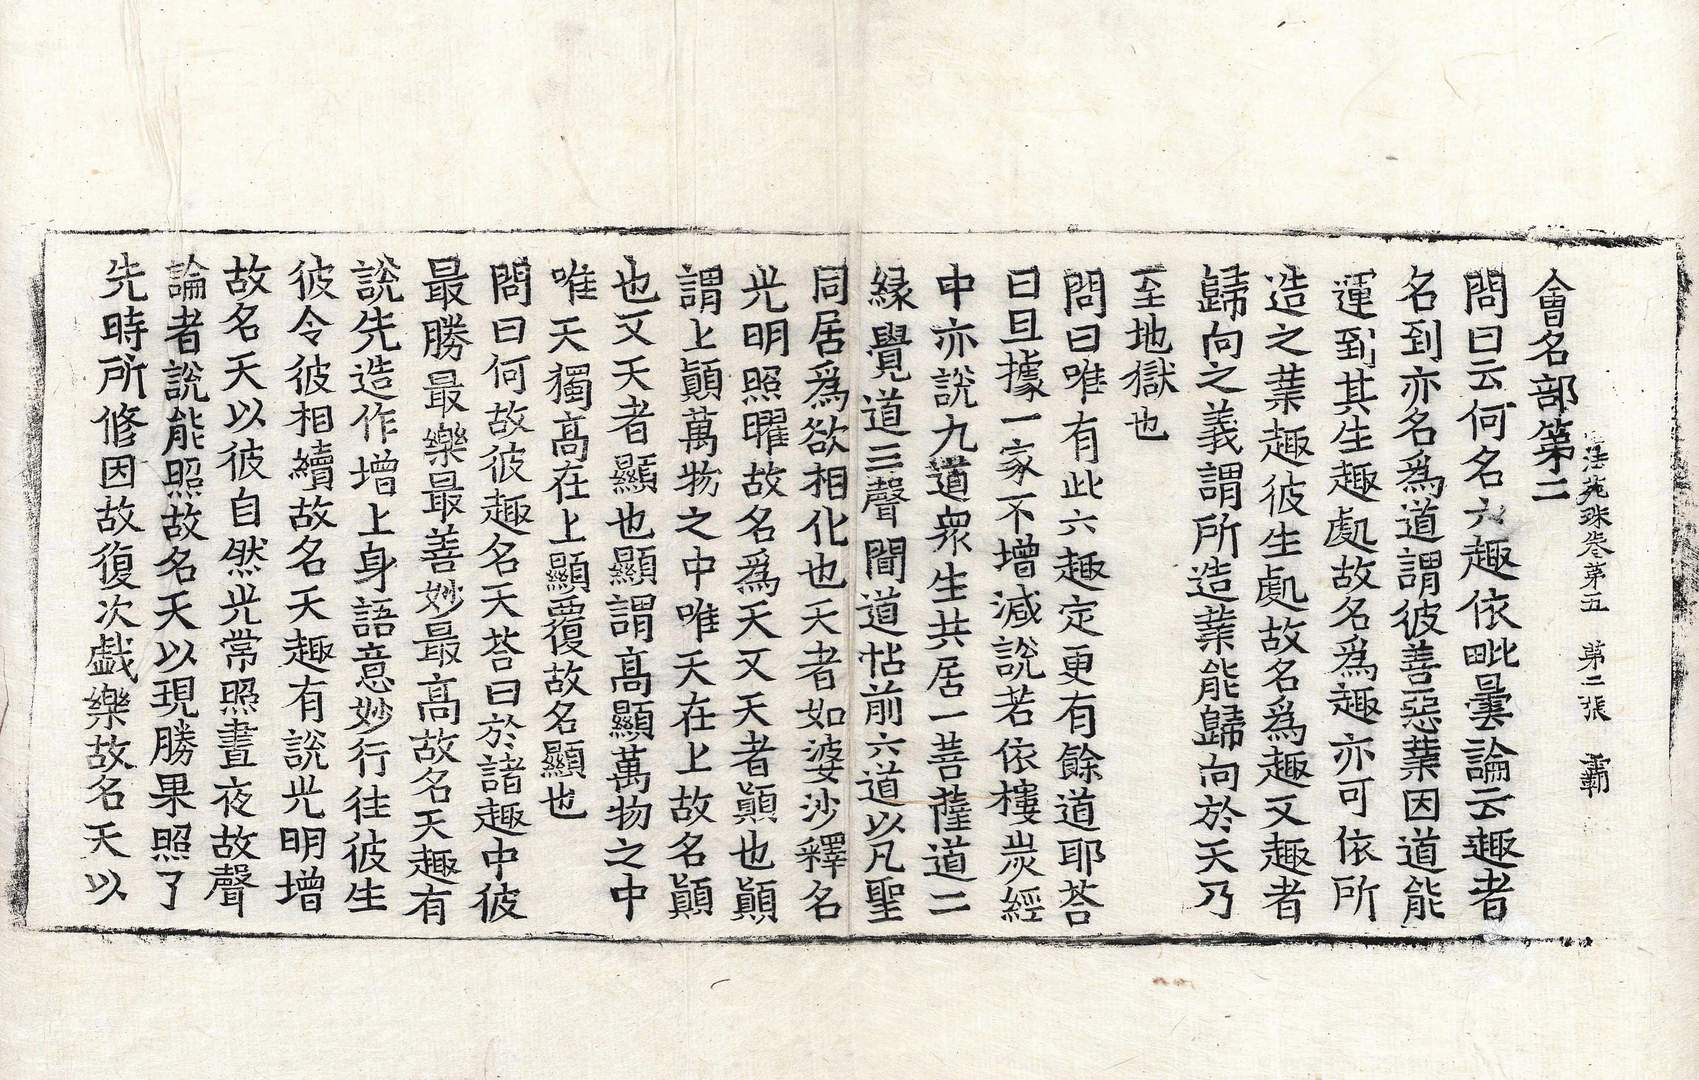 法苑珠卷第五 第二張 覇
會名部第二
問曰云何名六趣依毗曇論云趣者
名到亦名爲道謂彼善惡業因道能
運到其生趣處故名爲趣亦可依所
造之業趣彼生處故名爲趣又趣者
歸向之義謂所造業能歸向於天乃
至地獄也
問曰唯有此六趣定更有餘道耶荅
曰且據一家不增減說若依樓炭經
中亦說九道衆生共居一菩薩道二
緣覺道三聲聞道帖前六道以凡聖
同居爲欲相化也天者如婆沙釋名
光明照曜故名爲天又天者顚也顚
謂上顚萬物之中唯天在上故名顚
也又天者顯也顯謂高顯萬物之中
唯天獨高在上顯覆故名顯也
問曰何故彼趣名天荅曰於諸趣中彼
最勝最樂最善妙最高故名天趣有
說先造作增上身語意妙行往彼生
彼令彼相續故名天趣有說光明增
故名天以彼自然光常照晝夜故聲
論者說能照故名天以現勝果照了
先時所修因故復次戲樂故名天以